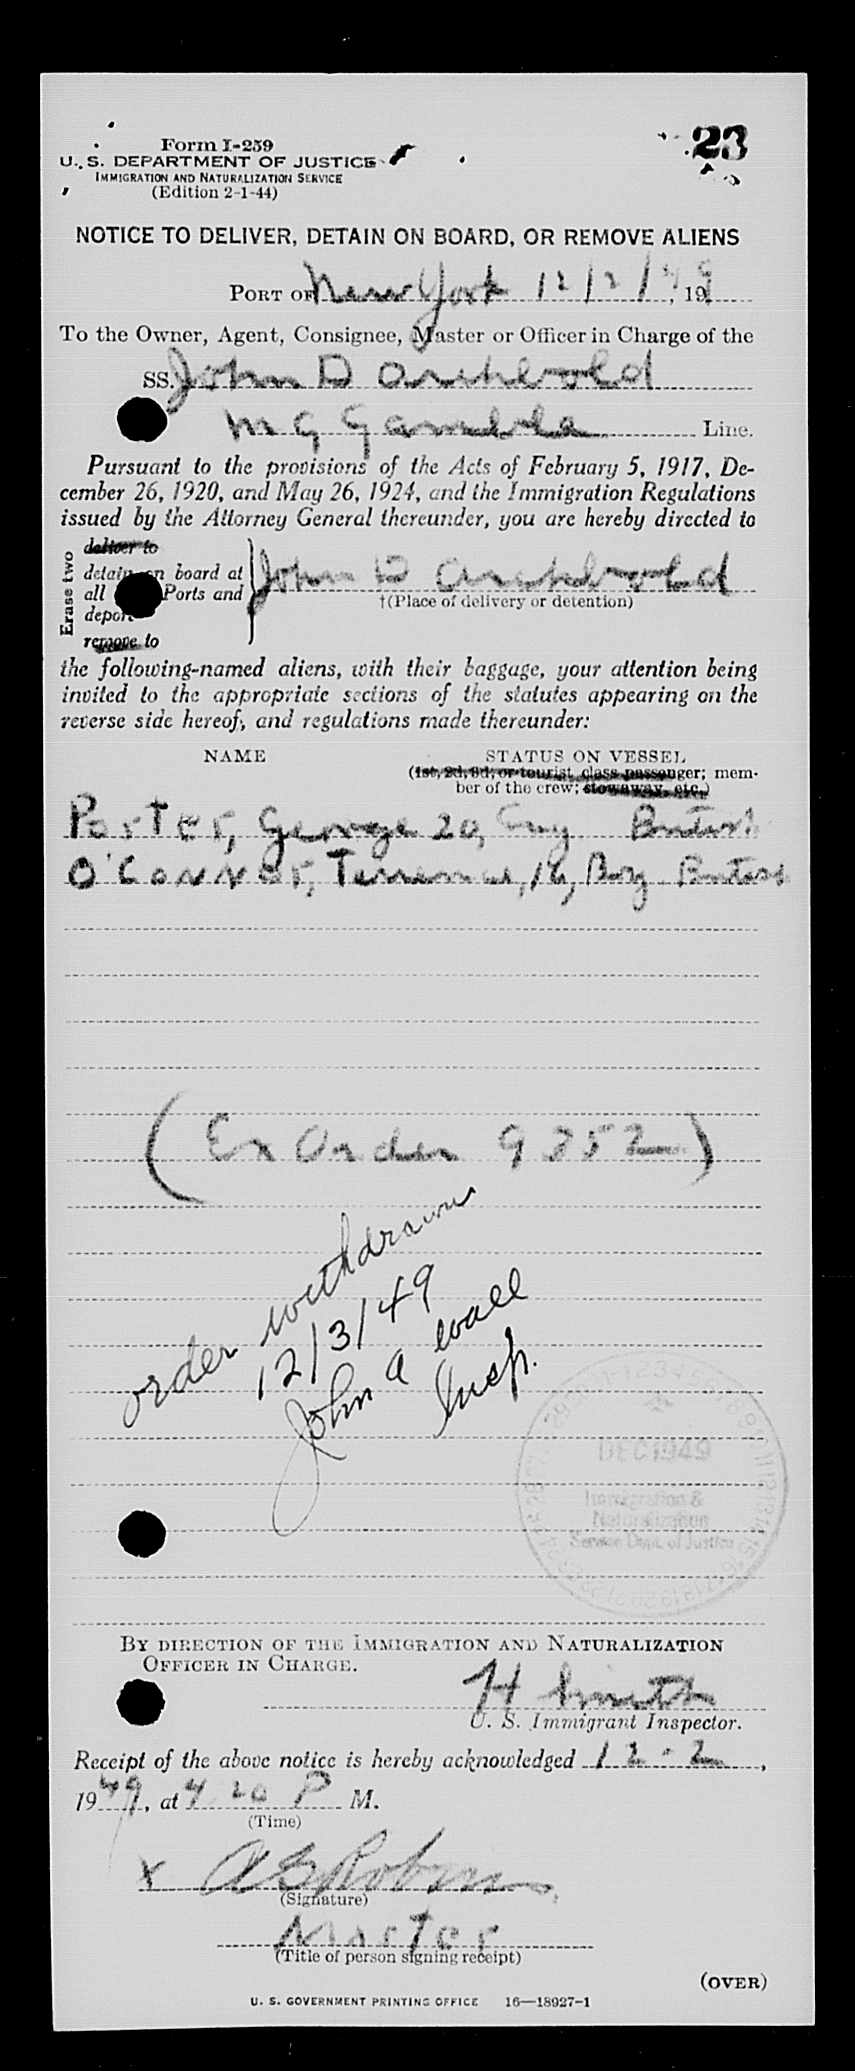 23
Form I-259
U. S. DEPARTMENT OF JUSTICE
IMMIGRATION AND NATURALIZATION SERVICE
(Edition 2-1-44)
NOTICE TO DELIVER, DETAIN ON BOARD, OR REMOVE ALIENS
PORT OF New York 12/2/49, 19
To the Owner, Agent, Consignee, Master or Officer in Charge of the
SS. John D Archbold
M G Gamble Line.
Pursuant to the provisions of the Acts of February 5, 1917, De-
cember 26, 1920, and May 26, 1924, and the Immigration Regulations
issued by the Attorney General thereunder, you are hereby directed to
Erase two
deliver to
detain on board at
all Ports and
deport
remove to
John D Archbold
†(Place of delivery or detention)
the following-named aliens, with their baggage, your attention being
invited to the appropriate sections of the statutes appearing on the
reverse side hereof, and regulations made thereunder:
NAME STATUS ON VESSEL
(1st, 2d, 3d, or tourist class passenger; mem-
ber of the crew; stowaway, etc.)
Porter, George 20, British
O'Connor, Terrence, 16, Boy British
(Ex Order 9352)
order withdrawn
12/3/49
John A Wall
Insp.
DEC 1949
Immigration &
Naturalization
Service Dept. of Justice
BY DIRECTION OF THE IMMIGRATION AND NATURALIZATION
OFFICER IN CHARGE.
H Smith
U. S. Immigrant Inspector.
Receipt of the above notice is hereby acknowledged 12-2,
1949, at 4 20 P M.
(Time)
X
(Signature)
Master
(Title of person signing receipt)
(OVER)
U. S. GOVERNMENT PRINTING OFFICE 16—18927-1